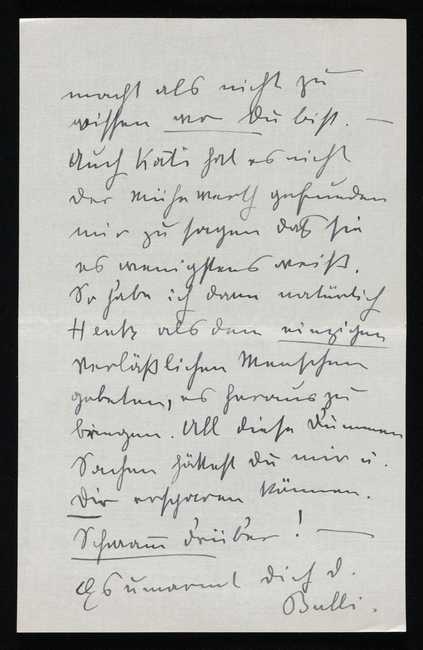 macht als nicht zu
wissen wo Du bist. —
Auch Kati hat es nicht
der Mühe werth gefunden
mir zu sagen daß sie
es wenigstens weiß.
So habe ich dann natürlich
Hentz als dem einzigen
verläßlichen Menschen
gebeten, es herauszu
bringen. All diese dummen
Sachen hättest Du mir u.
Dir ersparen können.
Schwam̅ drüber! —
Es umarmt Dich d.
Bulli.